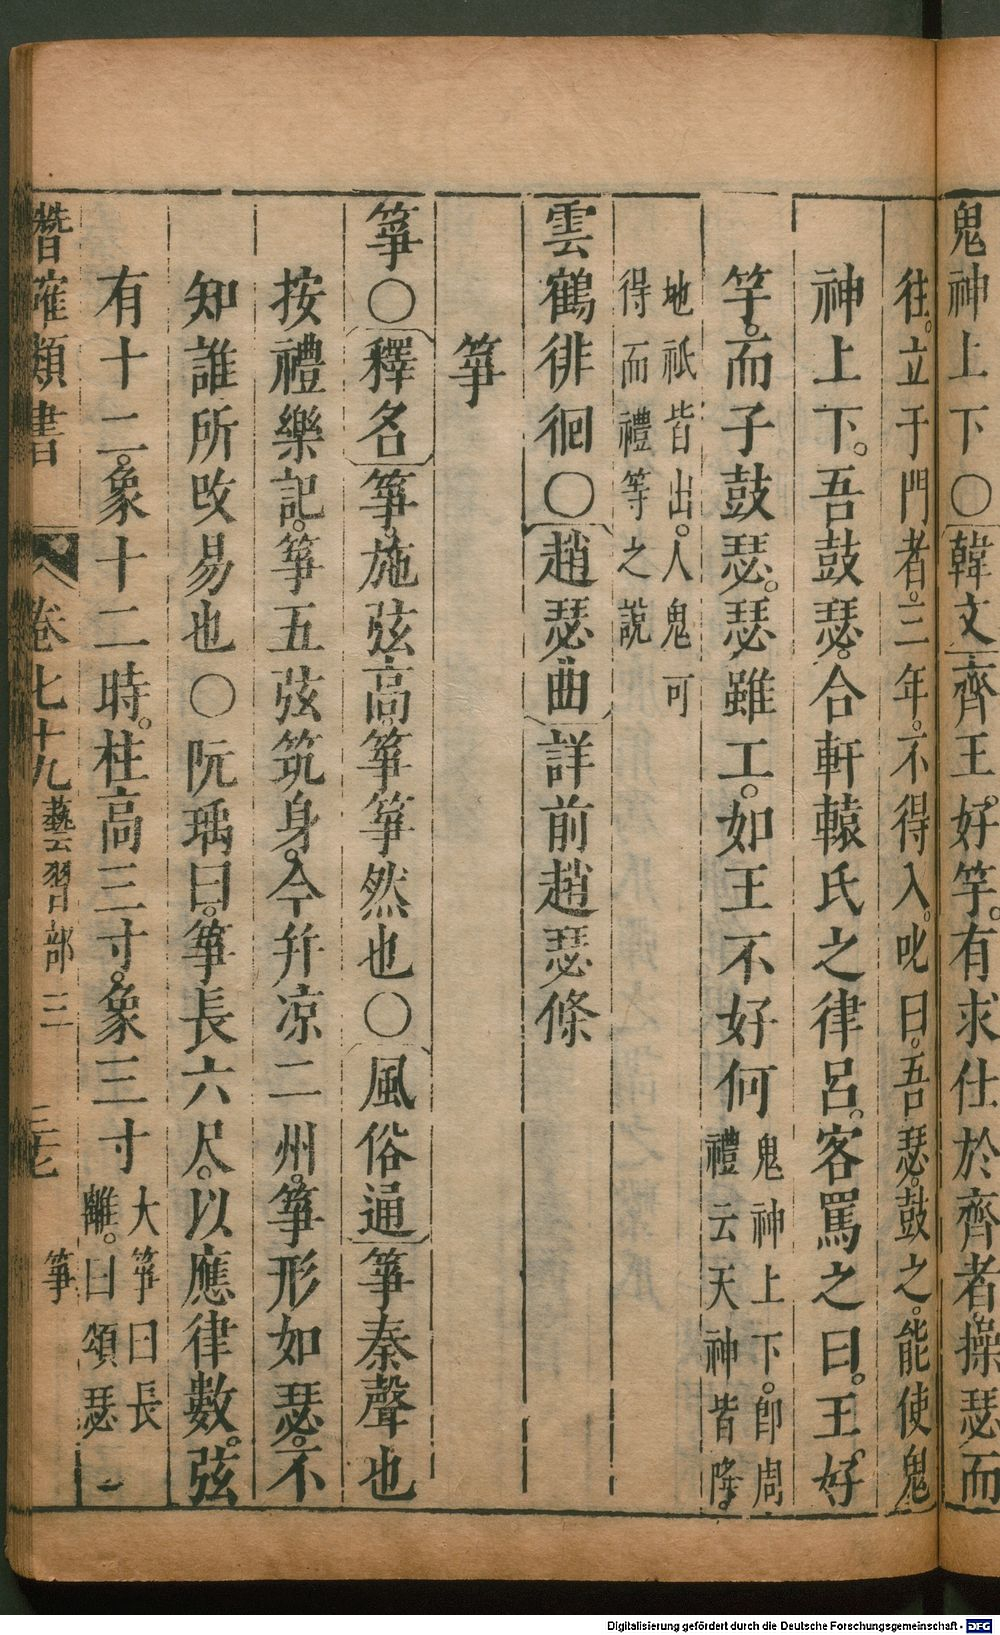 鬼神上下○韓文齊王好竽。有求仕於齊者。操瑟而
往。立于門者。三年。不得入。叱曰。吾瑟。鼓之。能使鬼
神上下。吾鼓瑟。合軒轅氏之律呂。客罵之曰。王好
竽。而子鼓瑟。瑟雖工。如王不好何鬼神上下。卽周
禮云天神皆降。
地祇皆出。人鬼可
得而禮等之說
雲鶴徘徊○趙瑟曲詳前趙瑟條
箏
箏○釋名箏。施弦高。箏箏然也○風俗通箏秦聲也
按禮樂記。箏五弦筑身。今并凉二州。箏形如瑟。不
知誰所改易也○阮瑀曰。箏長六尺。以應律數。弦
有十二。象十二時。柱高三寸。象三寸大箏曰長
離。曰頌瑟
卷七十九 藝習部三 箏
Digitalisierung gefördert durch die Deutsche Forschungsgemeinschaft - DFG